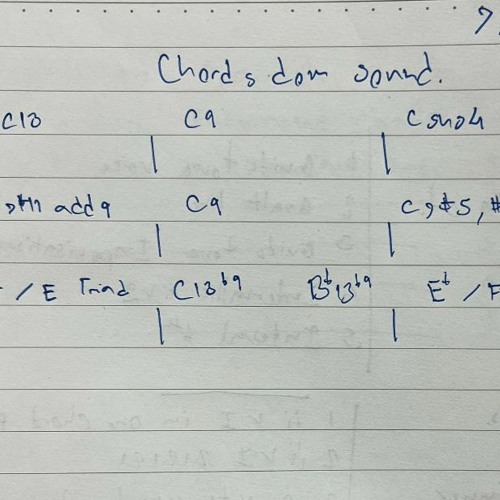 7.
Chords dom sound.
C13 C9 C sus4
add 9 C9 C, #5, #
/ E Triad C13♭9 B♭13♭9 E♭ / F